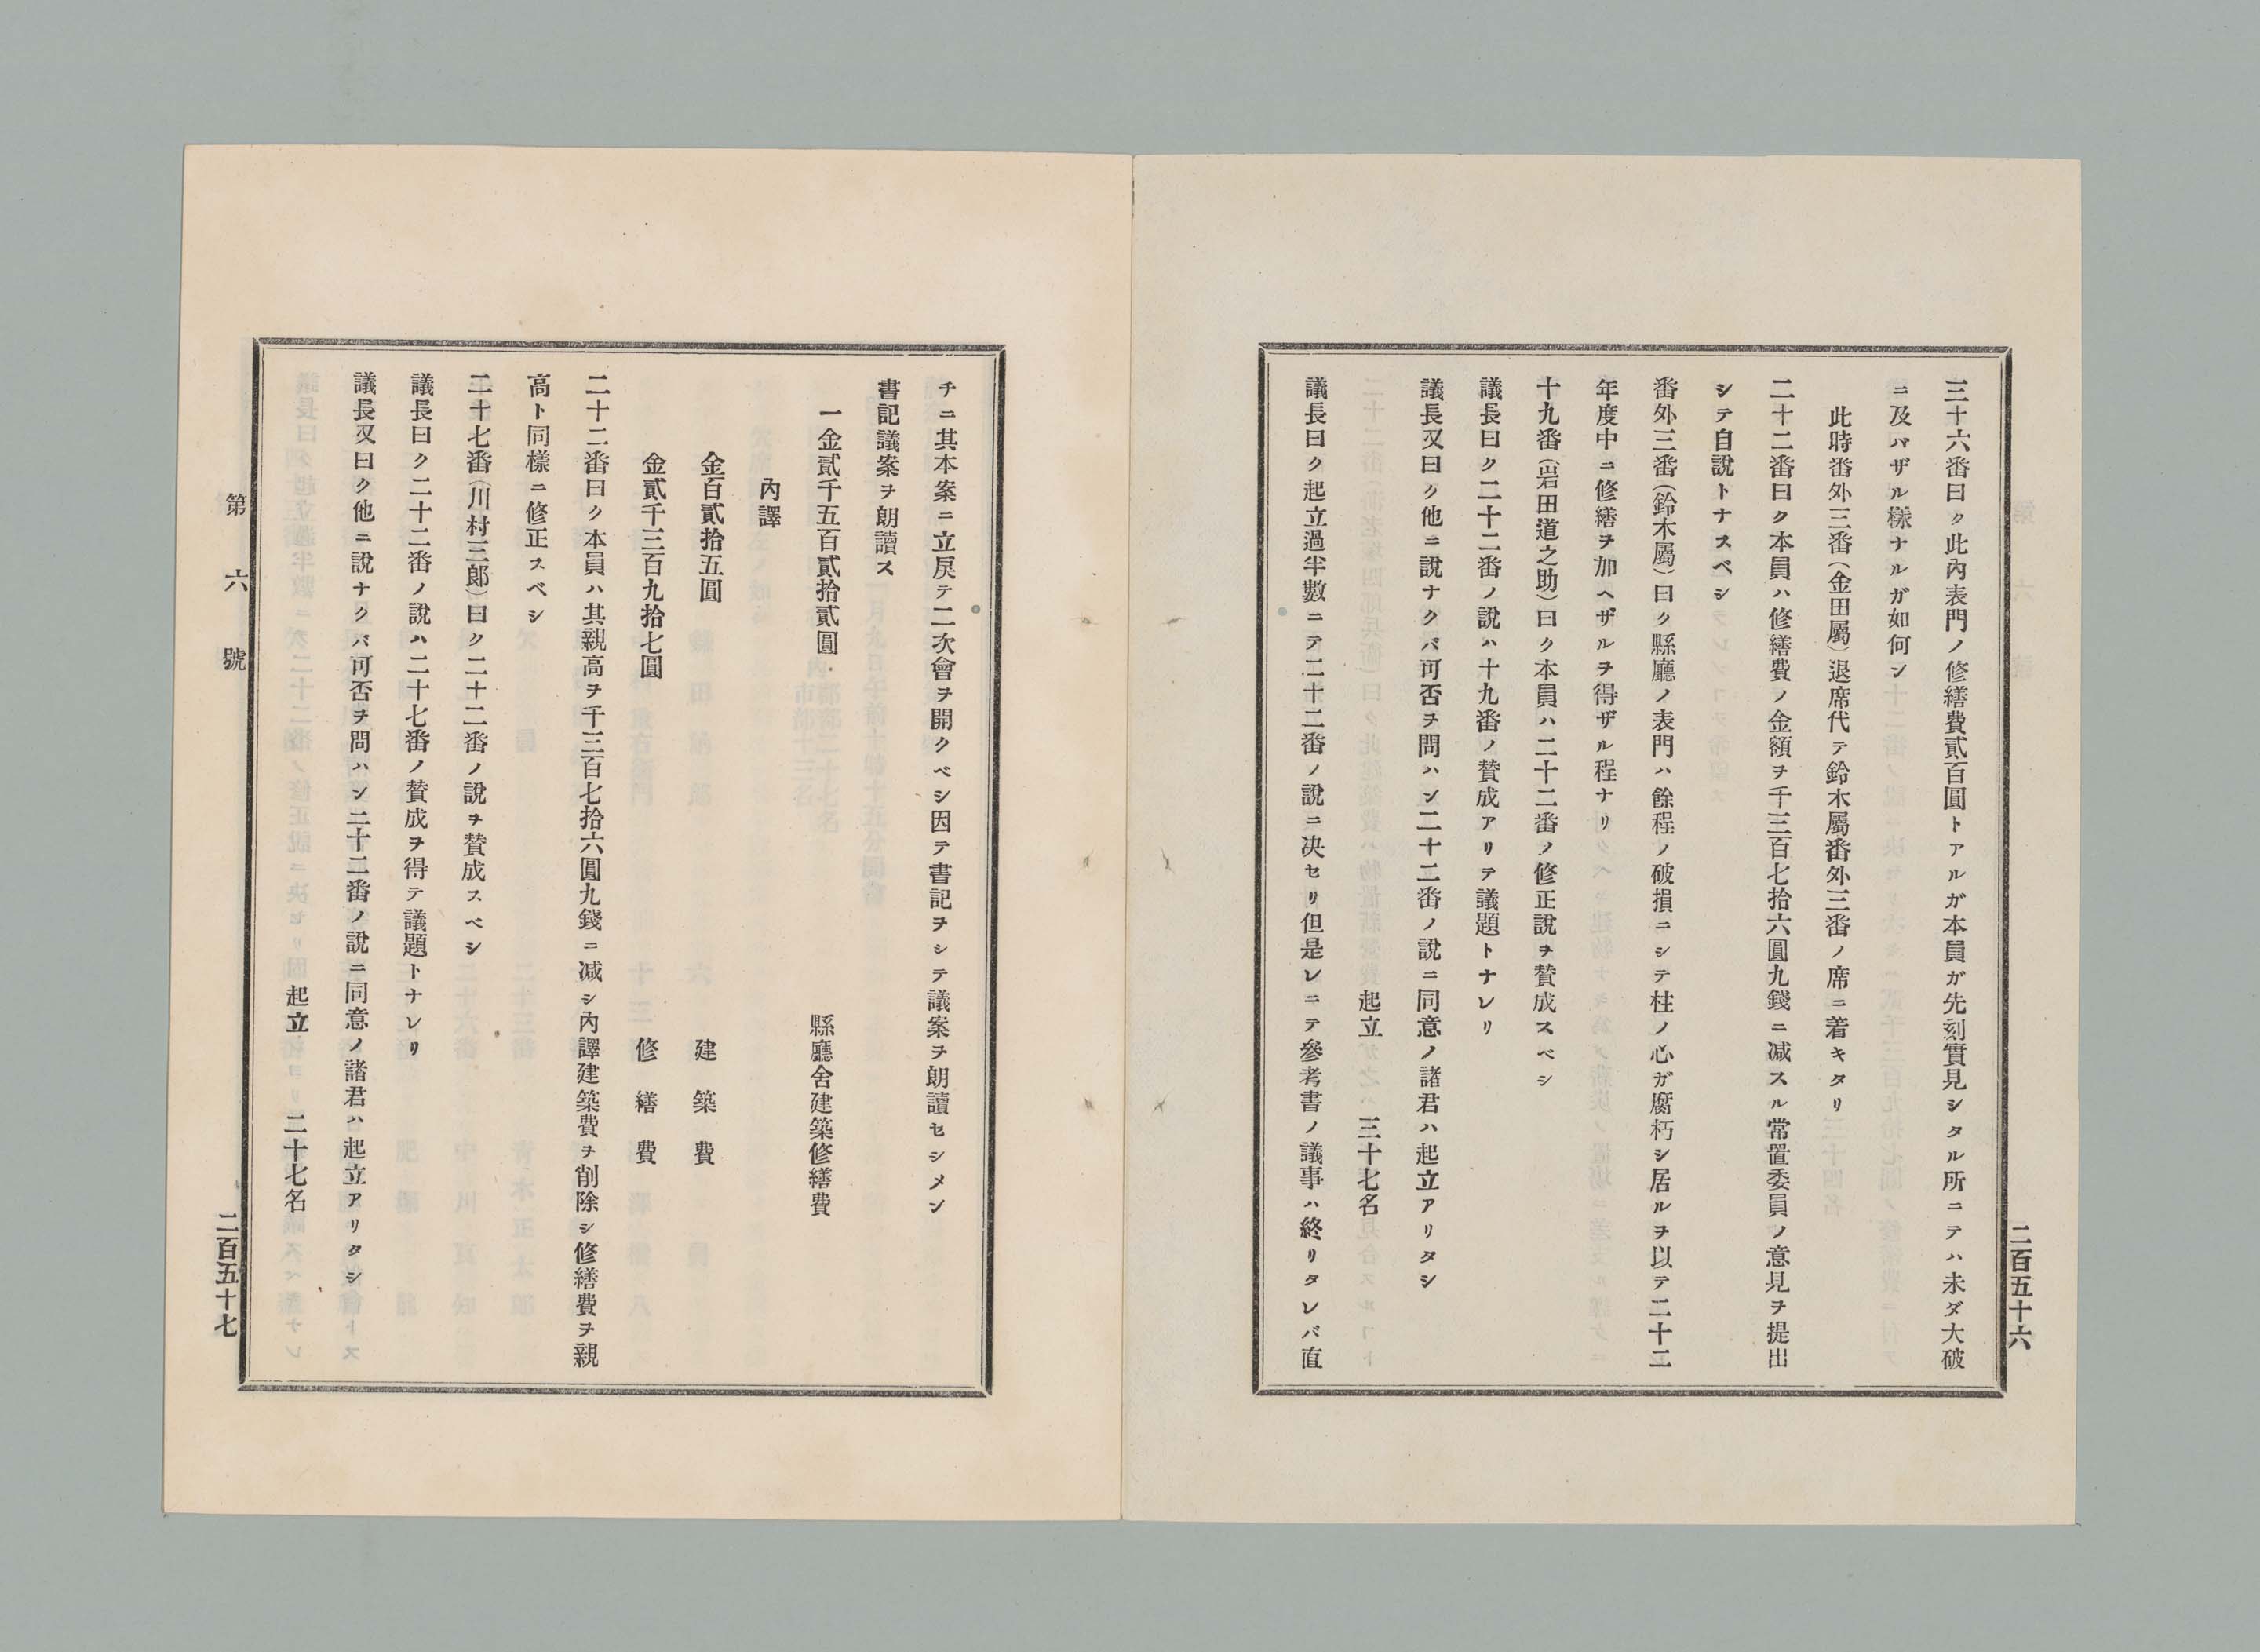 二百五十六
三十六番曰ク此內表門ノ修繕費貳百圓トアルガ本員ガ先刻實見シタル所ニテハ未ダ大破
ニ及ハザル樣ナルガ如何ン
此時番外三番(金田屬)退席代テ鈴木屬番外三番ノ席ニ着キタリ
二十二番曰ク本員ハ修繕費ノ金額ヲ千三百七拾六圓九錢ニ减スル常置委員ノ意見ヲ提出
シテ自說トナスベシ
番外三番(鈴木屬)曰ク縣廳ノ表門ハ餘程ノ破損ニシテ柱ノ心ガ腐朽シ居ルヲ以テ二十二
年度中ニ修繕ヲ加ヘザルヲ得ザル程ナリ
十九番(岩田道之助)曰ク本員ハ二十二番ノ修正說ヲ賛成スベシ
議長曰ク二十二番ノ說ハ十九番ノ賛成アリテ議題トナレリ
議長又曰ク他ニ說ナクバ可否ヲ問ハン二十二番ノ說ニ同意ノ諸君ハ起立アリタシ
起立 三十七名
議長曰ク起立過半數ニテ二十二番ノ說ニ决セリ但是レニテ參考書ノ議事ハ終リタレバ直
チニ其本案ニ立戾テ二次會ヲ開クベシ因テ書記ヲシテ議案ヲ朗讀セシメン
書記議案ヲ朗讀ス
一金貳千五百貳拾貳圓 縣廳舍建築修繕費
內譯
金百貳拾五圓 建築費
金貳千三百九拾七圓 修繕費
二十二番曰ク本員ハ其親高ヲ千三百七拾六圓九錢ニ减シ內譯建築費ヲ削除シ修繕費ヲ親
高ト同樣ニ修正スベシ
二十七番(川村三郞)曰ク二十二番ノ說ヲ賛成スベシ
議長曰ク二十二番ノ說ハ二十七番ノ賛成ヲ得テ議題トナレリ
議長又曰ク他ニ說ナクバ可否ヲ問ハン二十二番ノ說ニ同意ノ諸君ハ起立アリタシ
起立 二十七名
第六號
二百五十七